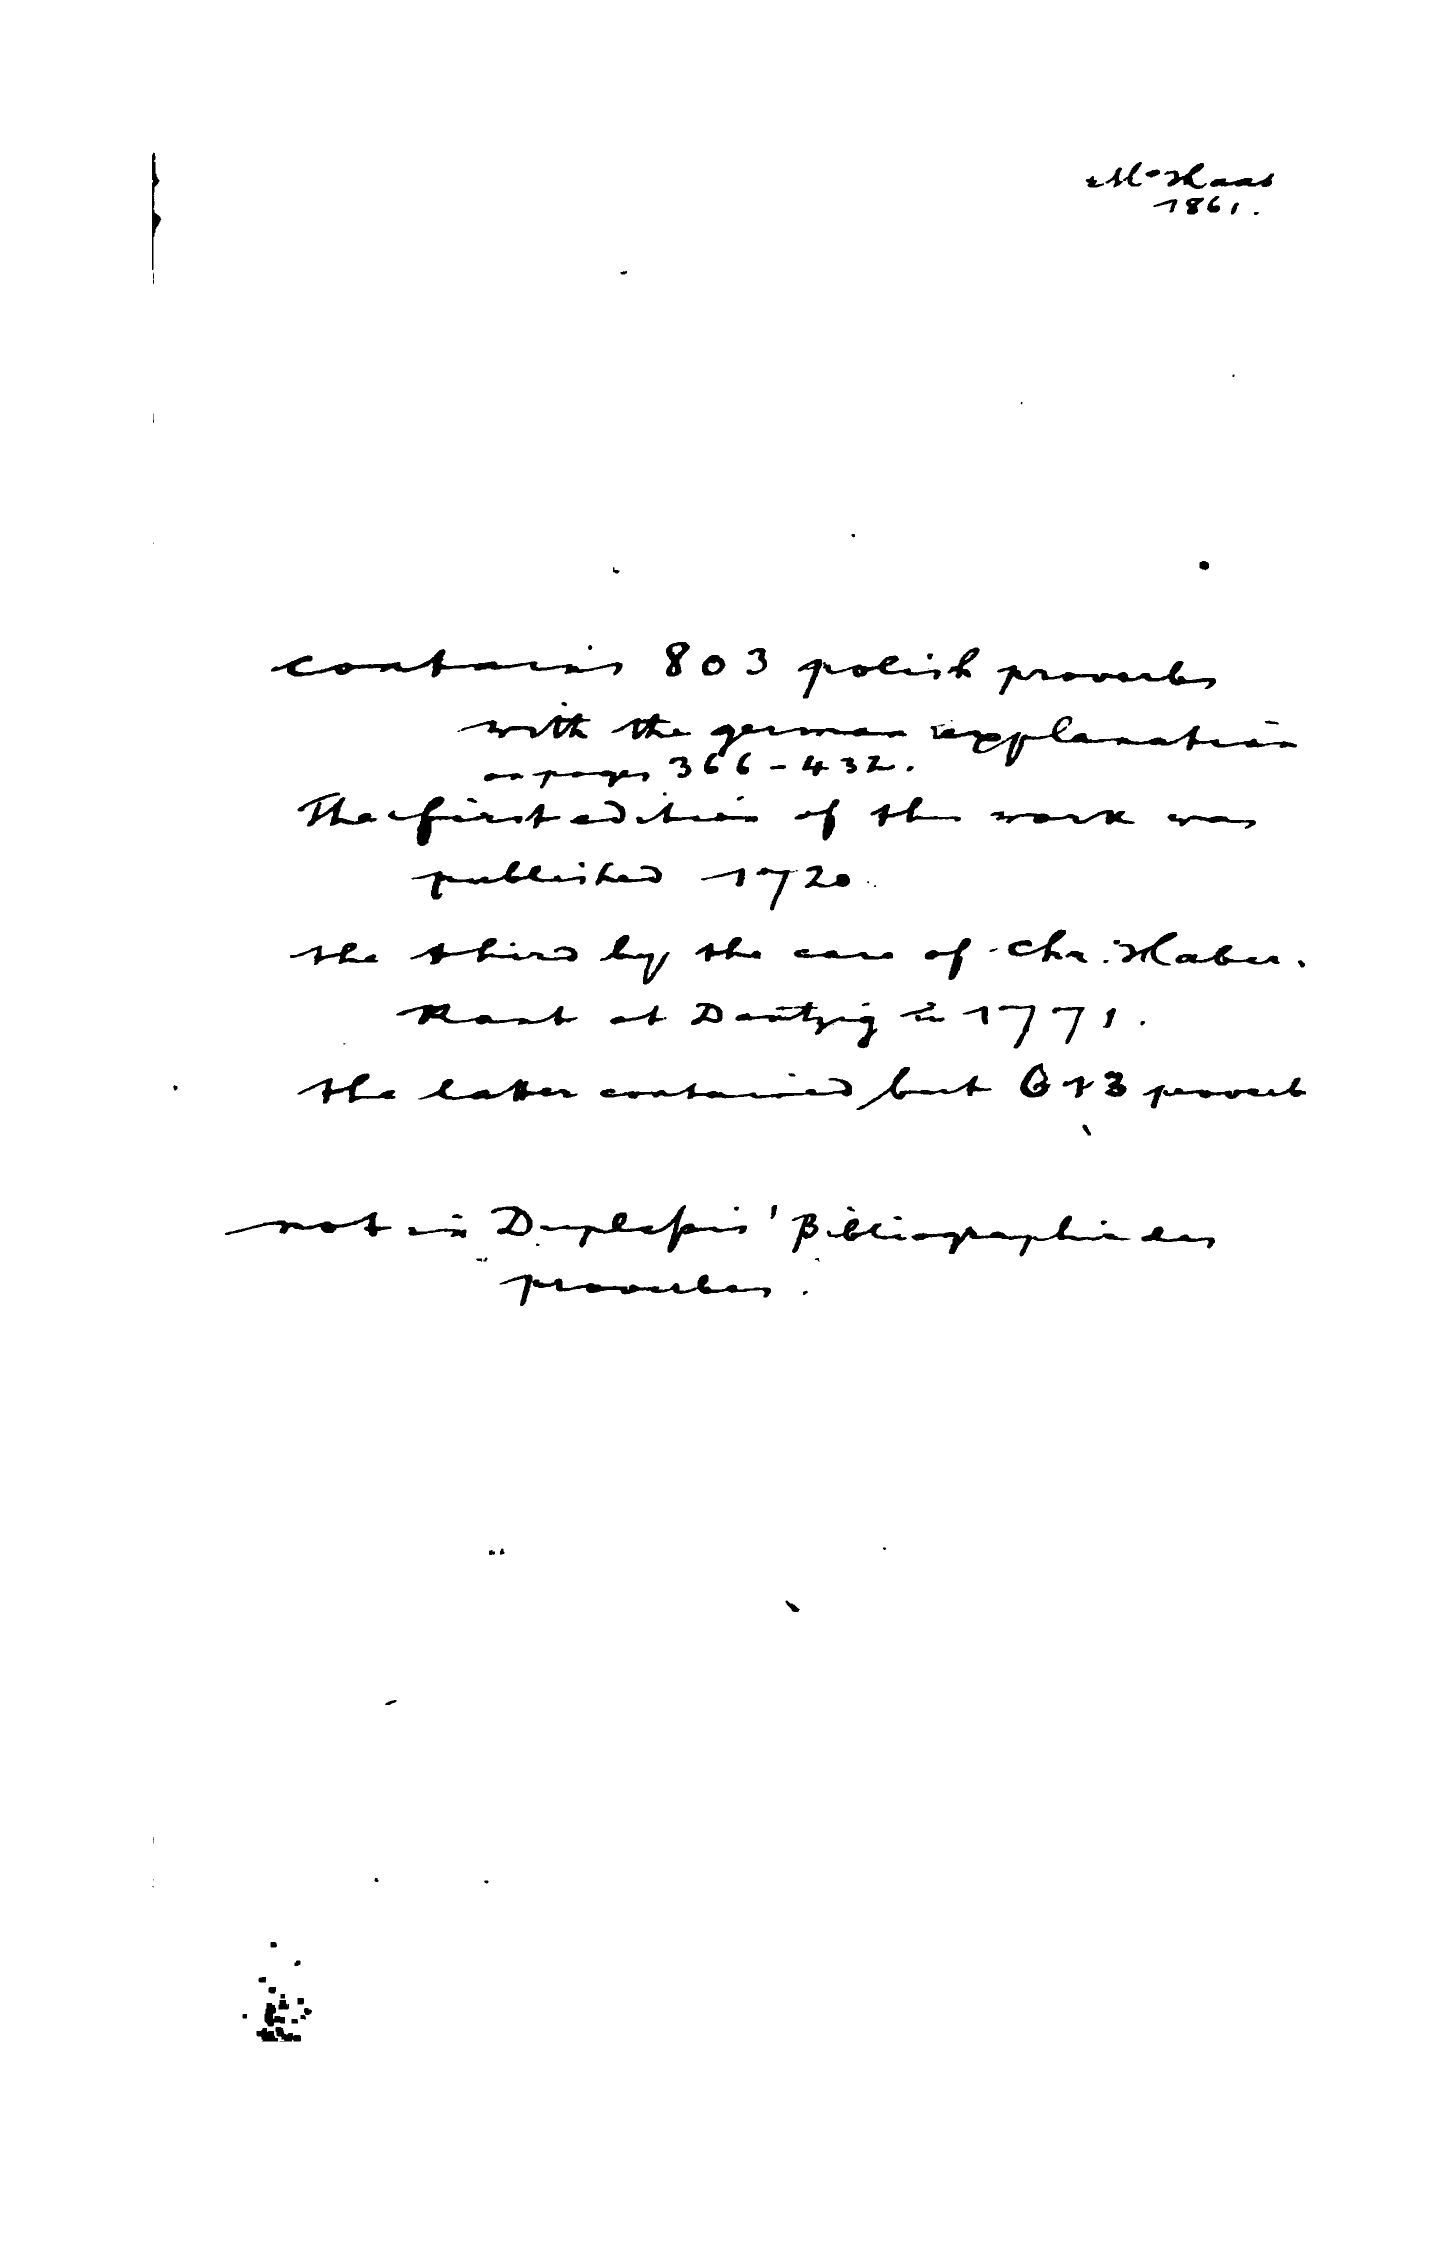 M. Haas
1861.
contains 803 polish proverbs
with the german explanation
on pages 366-432.
The first edition of this work was
published 1720.
the third by the care of Chr. Haber.
Kant at Dantzig in 1771.
the latter contained but proverb
not in Duplessis' Bibliographie des
proverbes.